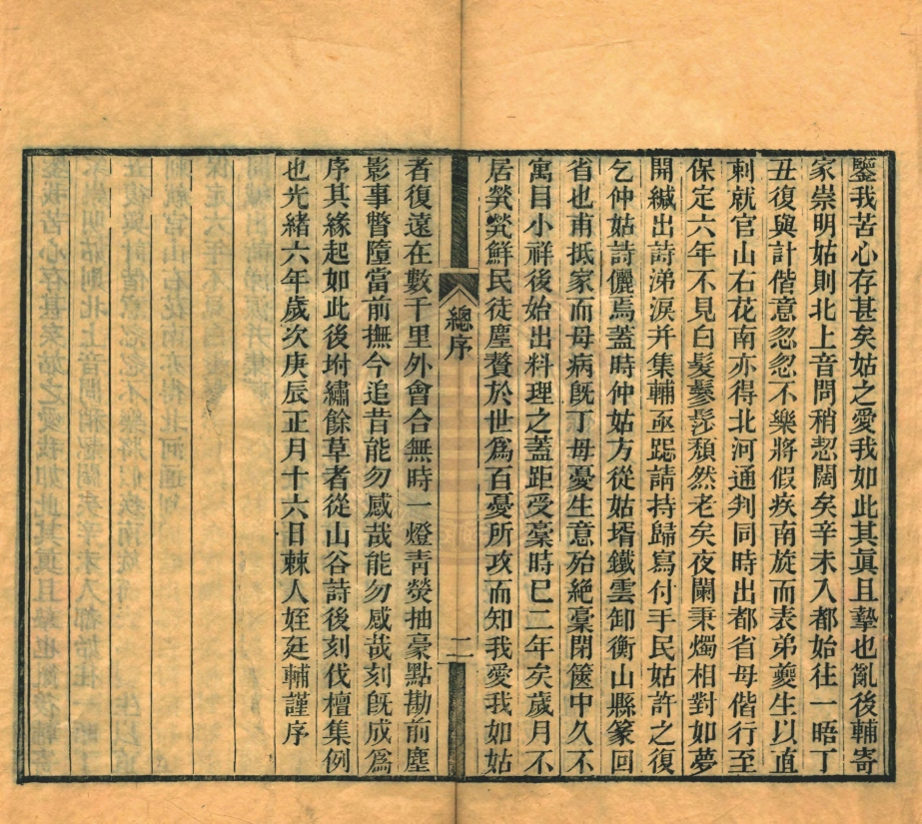 鑒我苦心存甚矣姑之愛我如此其真且摯也亂後輔寄
家崇明姑則北上音問稍恝闊矣辛未入都始往一晤丁
丑復與計偕意忽忽不樂將假疾南旋而表弟夔生以直
刺就官山右花南亦得北河通判同時出都省母偕行至
保定六年不見白髮鬖髿頹然老矣夜闌秉燭相對如夢
開緘出詩涕淚并集輔亟跽請持歸寫付手民姑許之復
乞仲姑詩儷焉蓋時仲姑方從姑壻鐵雲卸衡山縣篆回
省也甫抵家而母病旣丁母憂生意殆絶稾閉篋中久不
寓目小祥後始出料理之蓋距受稾時已二年矣歲月不
居煢煢鮮民徒塵贅於世爲百憂所攻而知我愛我如姑
總序
二
者復遠在數千里外會合無時一燈靑熒抽豪點勘前塵
影事瞥墮當前撫今追昔能勿感哉能勿感哉刻旣成爲
序其緣起如此後坿繡餘草者從山谷詩後刻伐檀集例
也光緒六年歲次庚辰正月十六日棘人姪廷輔謹序